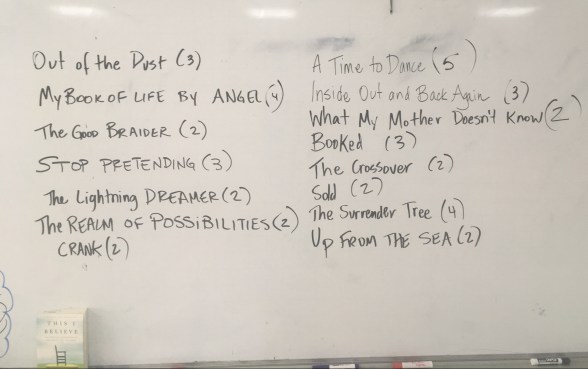 Out of the Dust (3)
My Book of Life by Angel (4)
The Good Braider (2)
Stop Pretending (3)
The Lightning Dreamer (2)
The Realm of Possibilities (2)
Crank (2)
A Time to Dance (5)
Inside Out and Back Again (3)
What My Mother Doesn't Know (2)
Booked (3)
The Crossover (2)
Sold (2)
The Surrender Tree (4)
Up From the Sea (2)
THIS I
BELIEVE